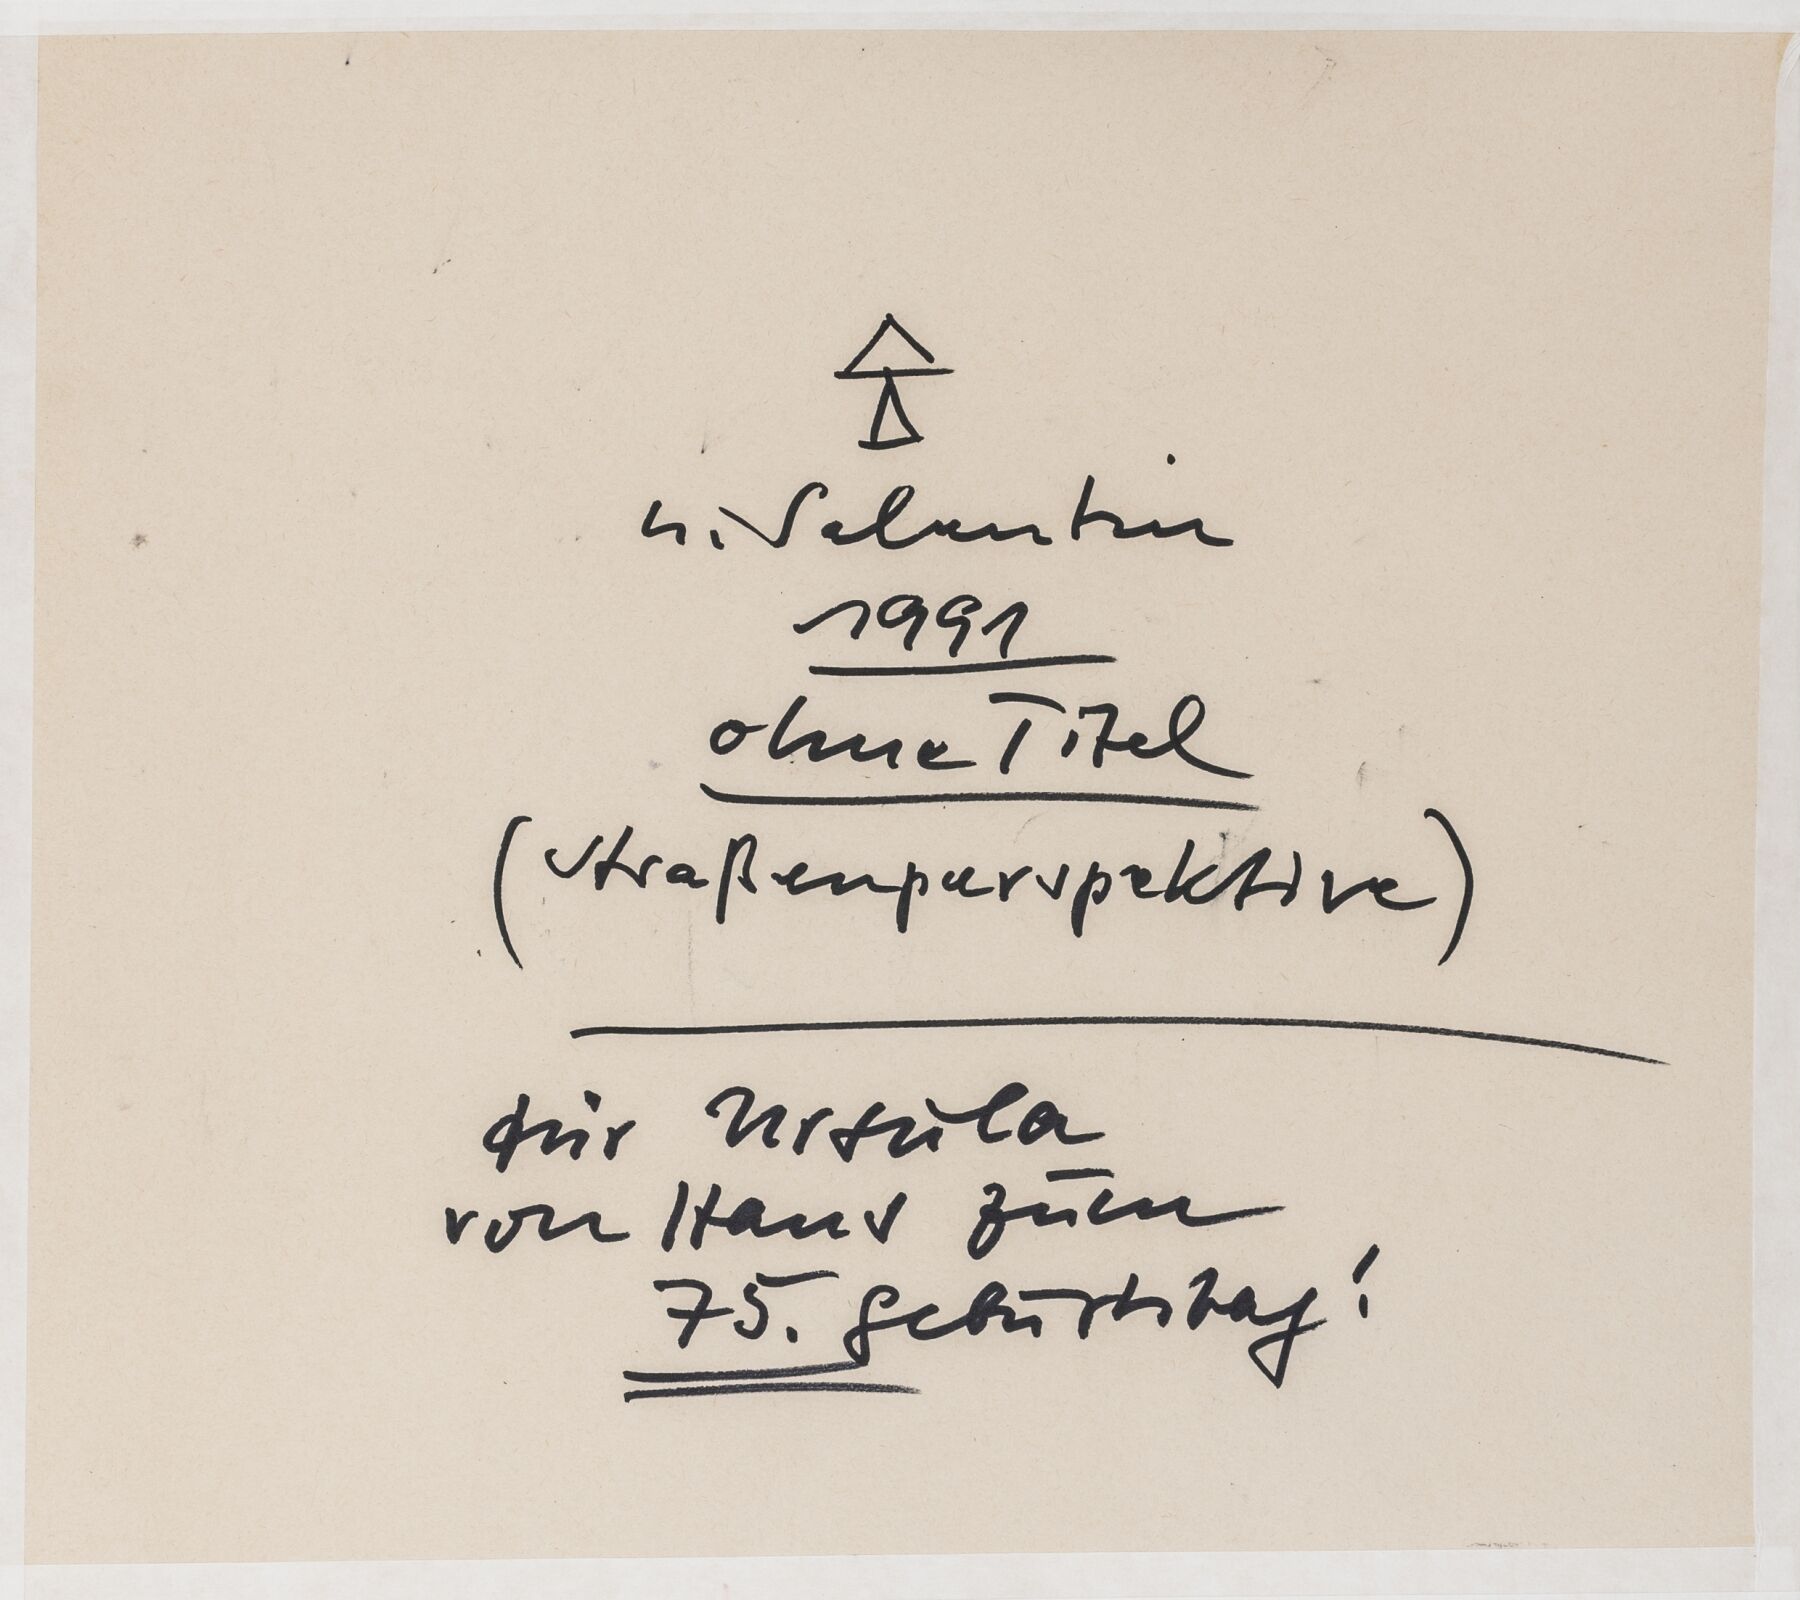 h. Salentin
1991
ohne Titel
(straßenperspektive)
für Ursula
von Hans zum
75. Geburtstag!